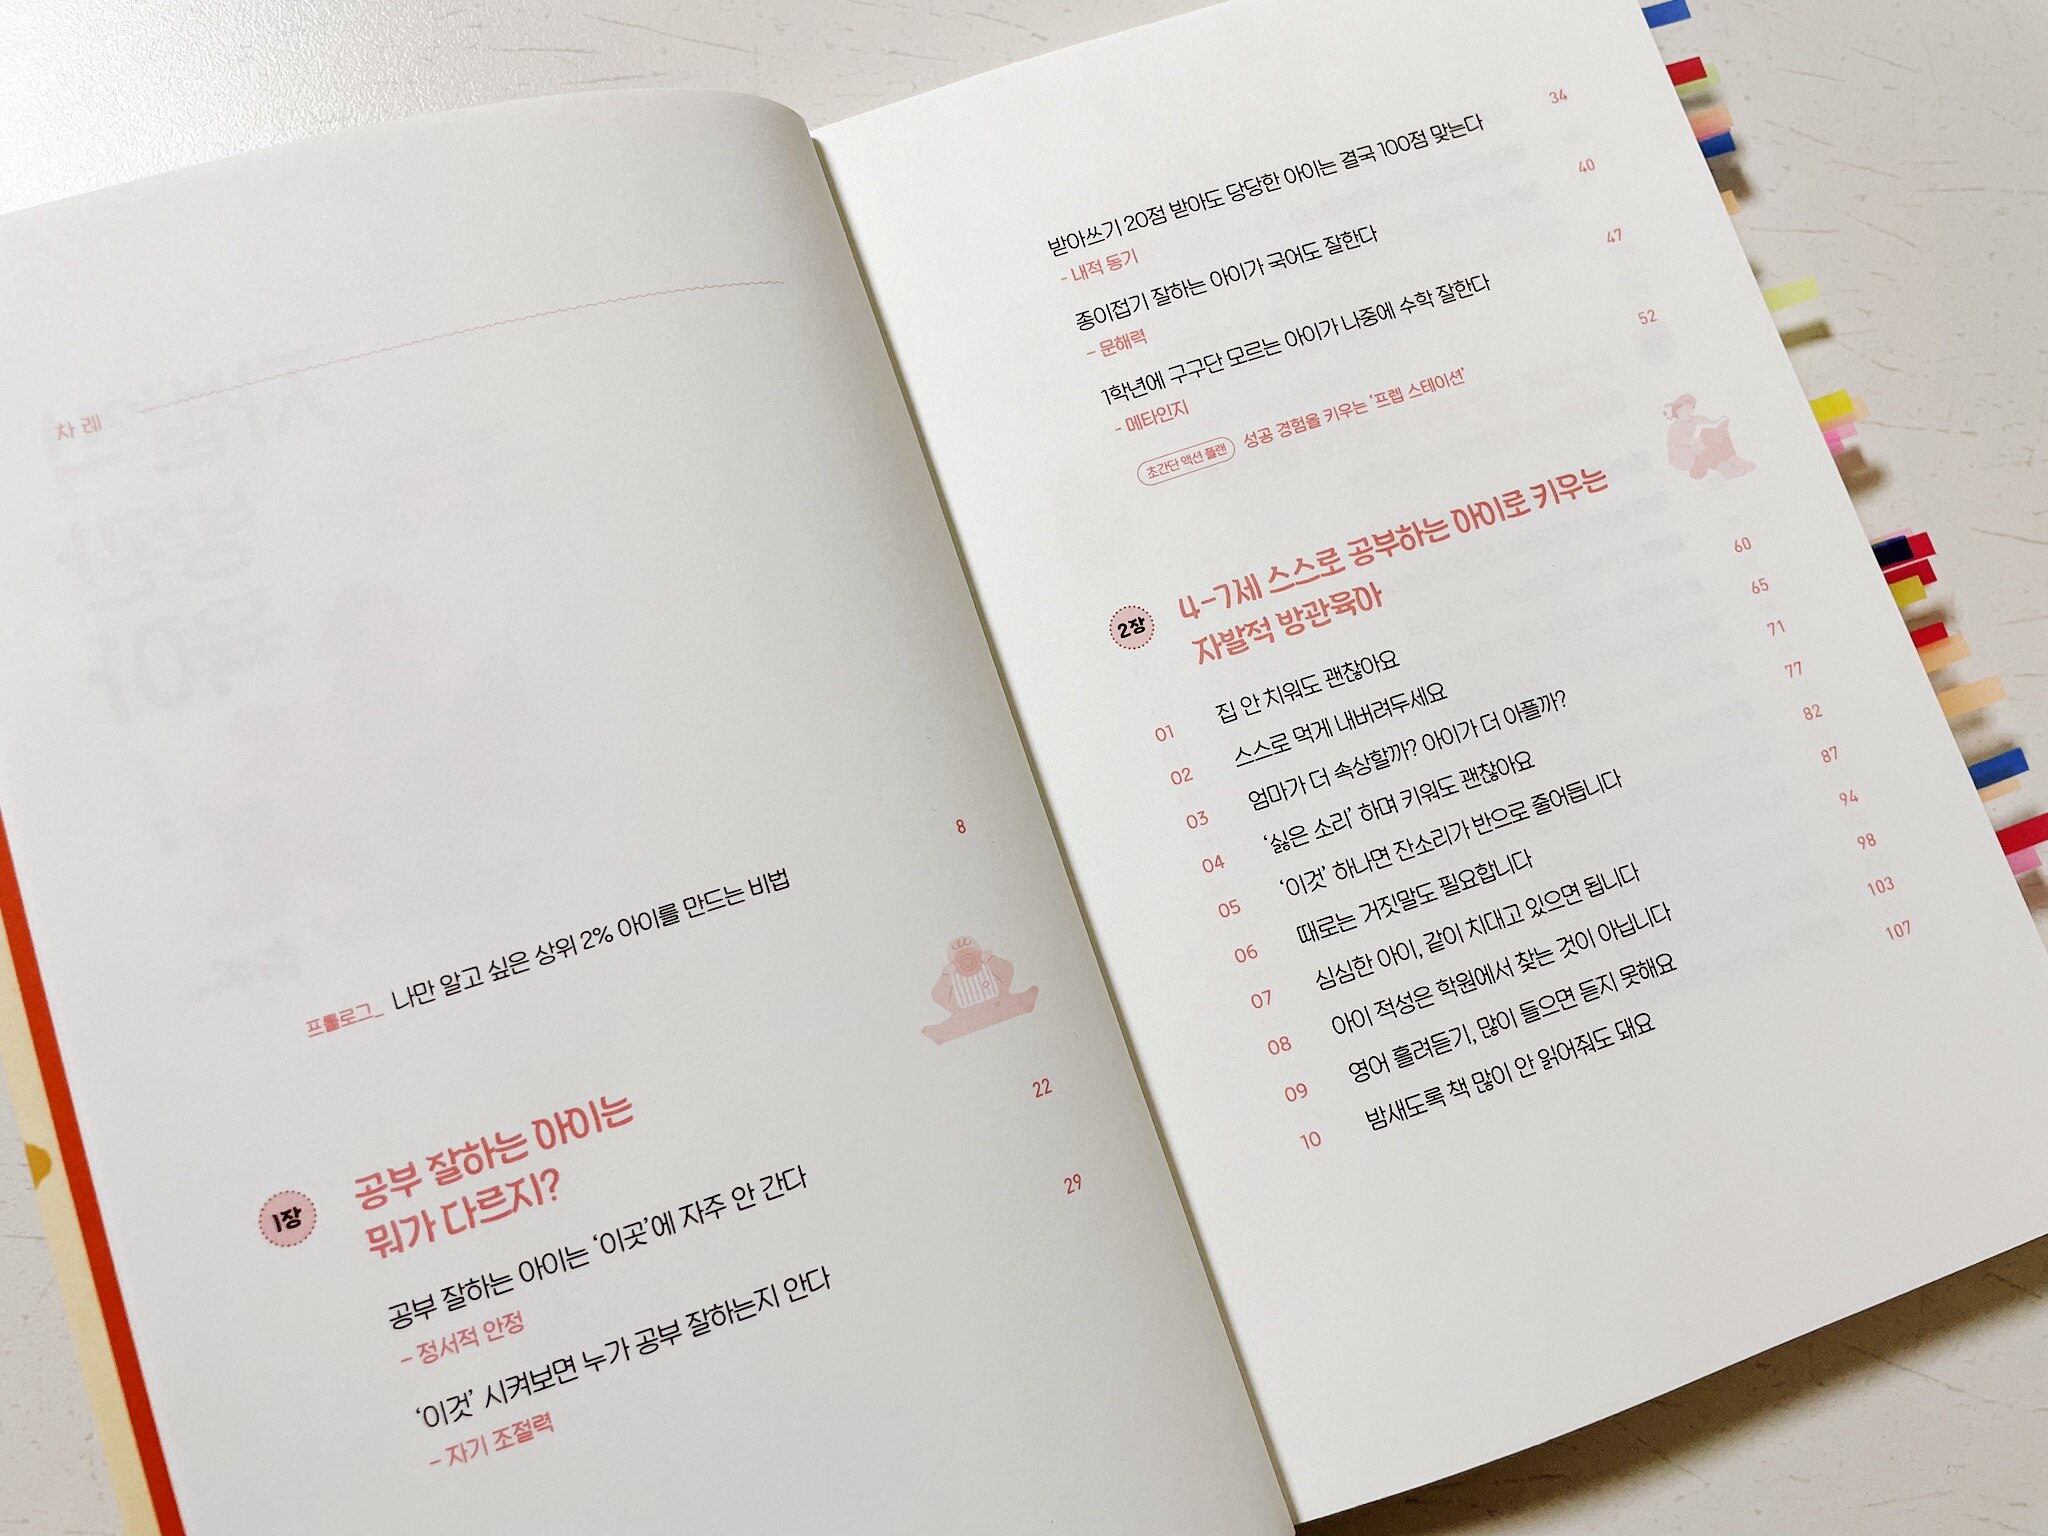 차례
프롤로그_ 나만 알고 싶은 상위 2% 아이를 만드는 비법 8
1장 공부 잘하는 아이는
뭐가 다르지?
공부 잘하는 아이는 ‘이곳’에 자주 안 간다 22
- 정서적 안정
‘이것’ 시켜보면 누가 공부 잘하는지 안다 29
- 자기 조절력
받아쓰기 20점 받아도 당당한 아이는 결국 100점 맞는다 34
- 내적 동기
종이접기 잘하는 아이가 국어도 잘한다 40
- 문해력
1학년에 구구단 모르는 아이가 나중에 수학 잘한다 47
- 메타인지
초간단 액션 플랜 성공 경험을 키우는 ‘프렙 스테이션’ 52
2장 4-7세 스스로 공부하는 아이로 키우는
자발적 방관육아
01 집 안 치워도 괜찮아요 60
02 스스로 먹게 내버려두세요 65
03 엄마가 더 속상할까? 아이가 더 아플까? 71
04 ‘싫은 소리’ 하며 키워도 괜찮아요 77
05 ‘이것’ 하나면 잔소리가 반으로 줄어듭니다 82
06 때로는 거짓말도 필요합니다 87
07 심심한 아이, 같이 치대고 있으면 됩니다 94
08 아이 적성은 학원에서 찾는 것이 아닙니다 98
09 영어 흘려듣기, 많이 들으면 듣지 못해요 103
10 밤새도록 책 많이 안 읽어줘도 돼요 107